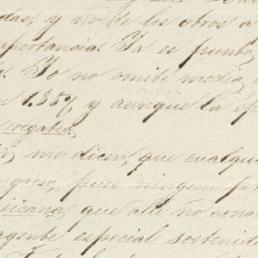 das, y no de los otros a
importancia. Ya es punto,
Yo no omití medio,
1857, y aunque la
regatea,
me dicen, que cualqu
ngreso, pues ningun
icana, que alli no cono
agente especial sostenid